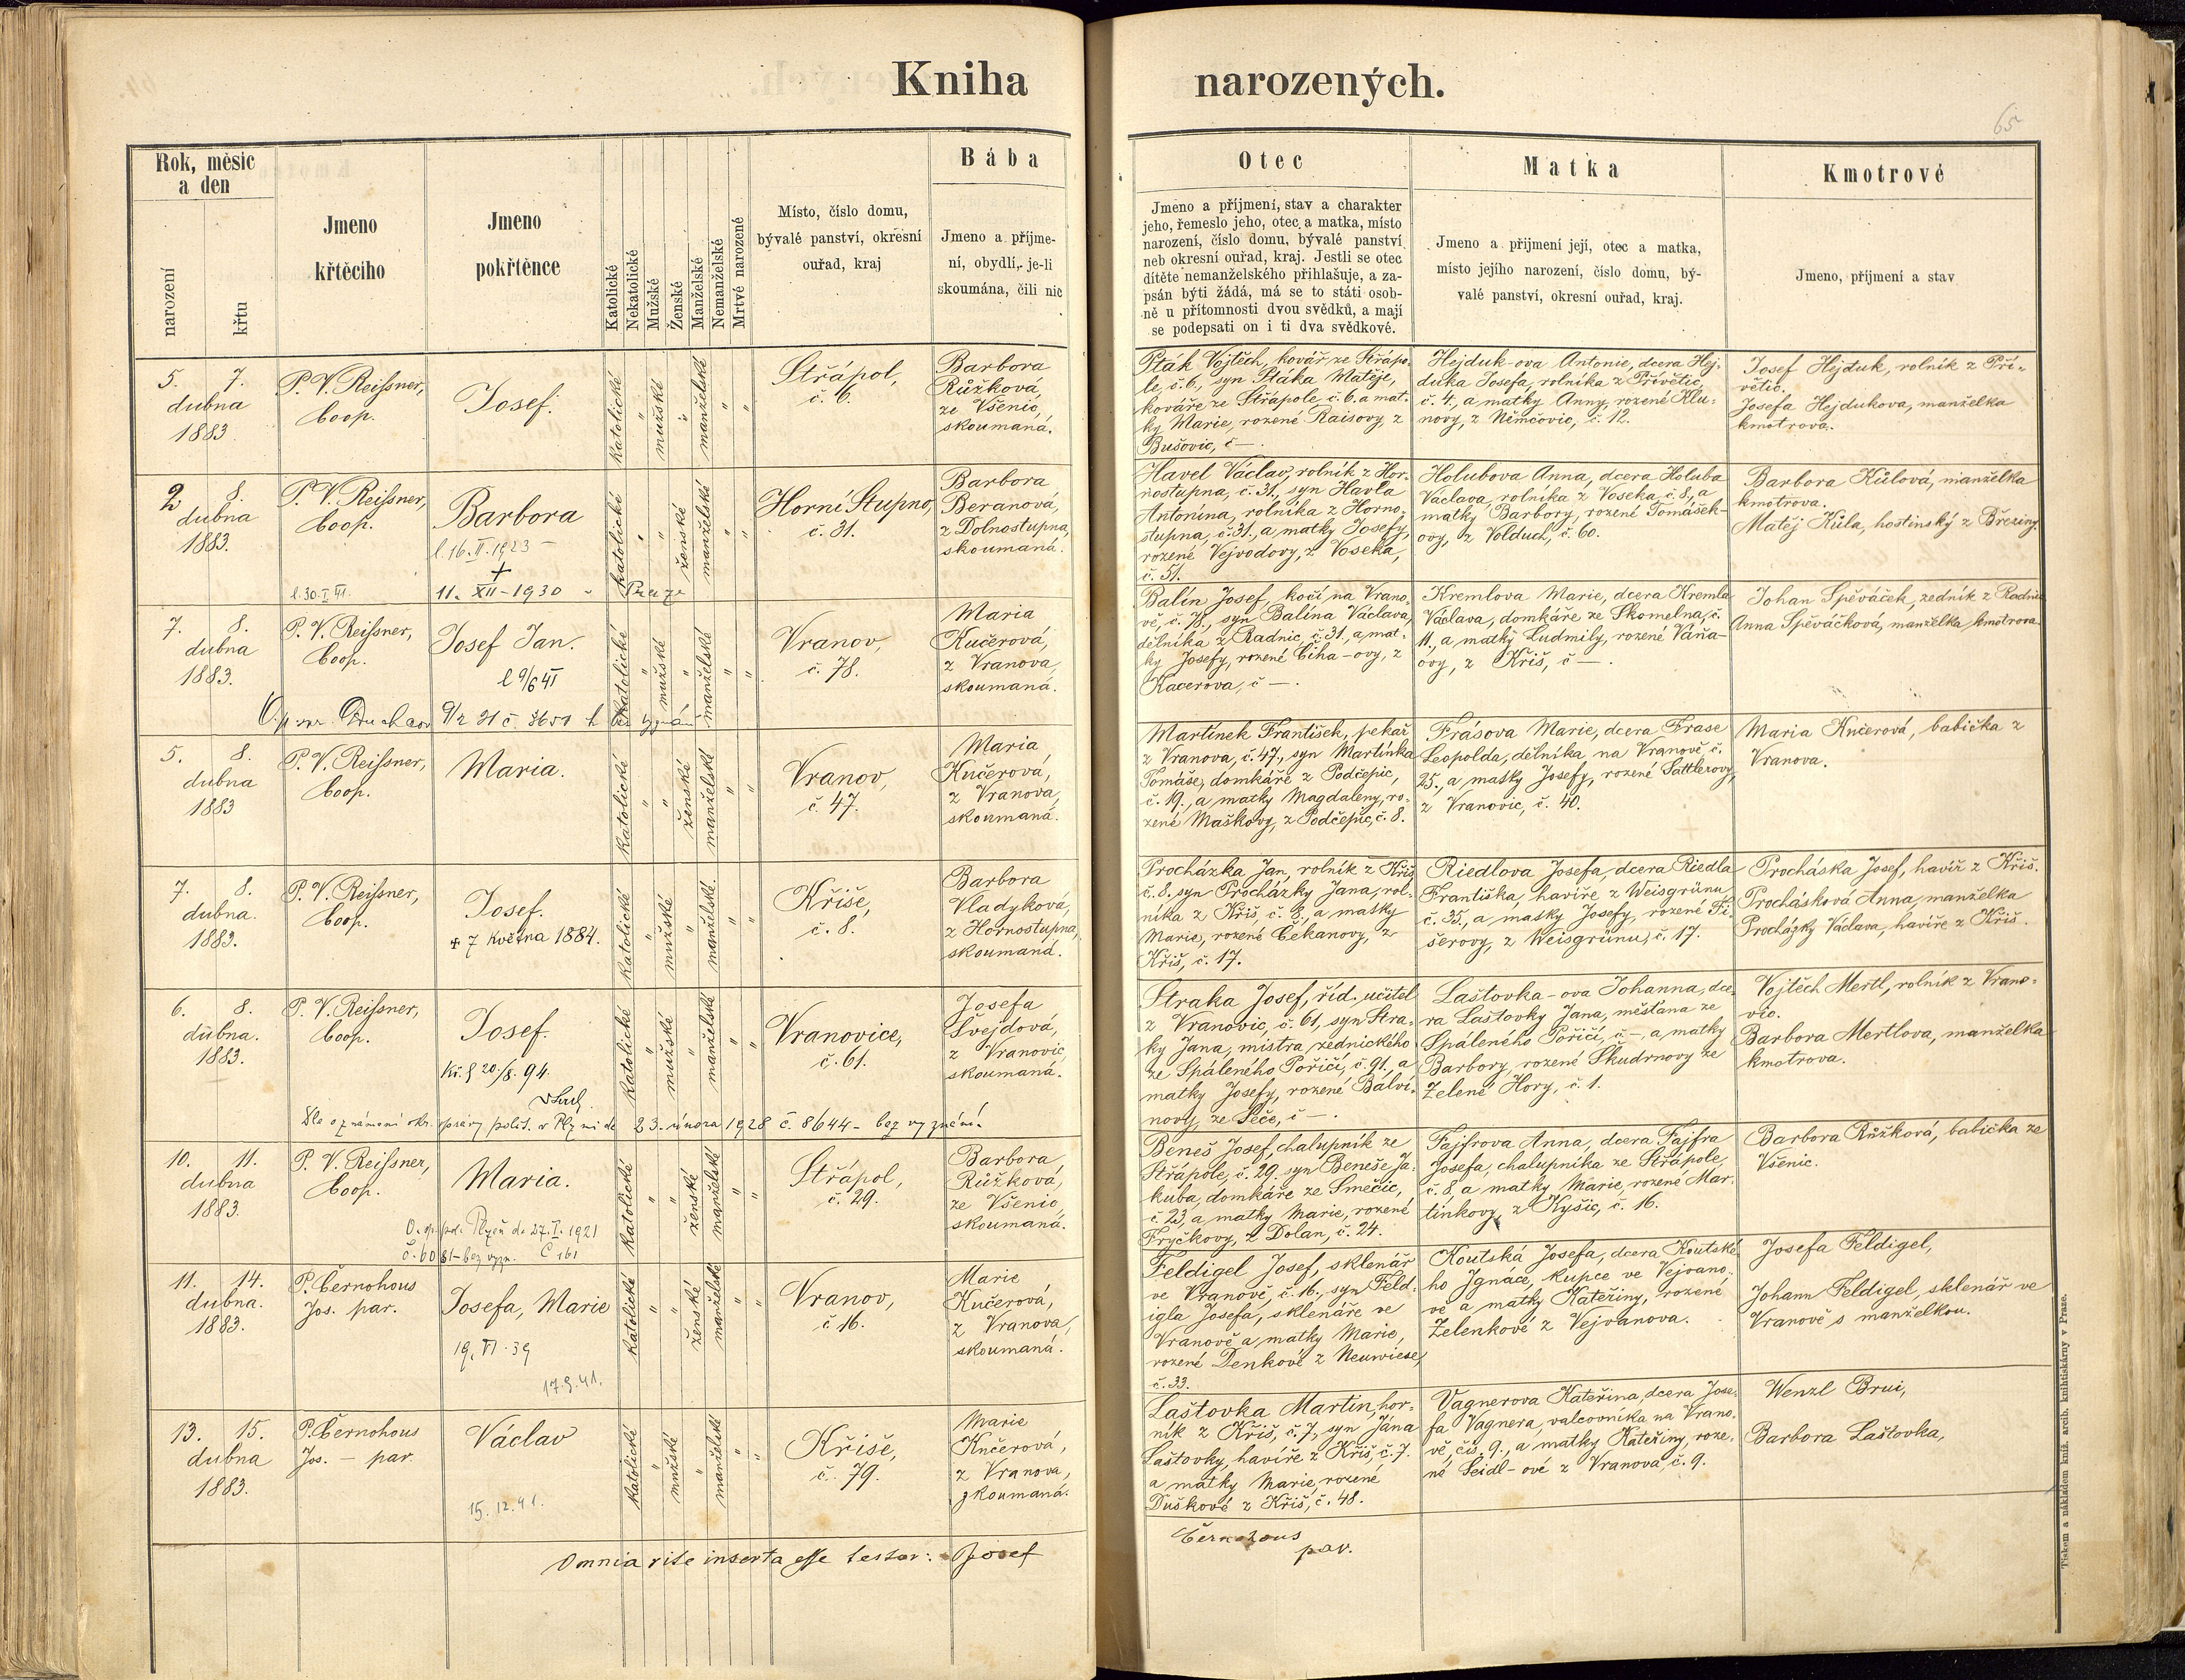 Kniha narozených.
65
Rok, měsíc
a den
narození
křtu
Jmeno
křtěcího
Jmeno
pokřtěnce
Katolické
Nekatolické
Mužské
Ženské
Manželské
Nemanželské
Mrtvé narozené
Místo, číslo domu,
bývalé panství, okresní
ouřad, kraj
Bába
Jmeno a příjme-
ní, obydlí, je-li
skoumána, čili nic
Otec
Jmeno a příjmení, stav a charakter
jeho, řemeslo jeho, otec a matka, místo
narození, číslo domu, bývalé panství
neb okresní ouřad, kraj. Jestli se otec
dítěte nemanželského přihlašuje, a za-
psán býti žádá, má se to státi osob-
ně u přítomnosti dvou svědků, a mají
se podepsati on i ti dva svědkové.
Matka
Jmeno a přijmení její, otec a matka,
místo jejího narození, číslo domu, bý-
valé panství, okresní ouřad, kraj.
Kmotrové
Jmeno, příjmení a stav
5. 7.
dubna
1883
P. V. Reißner,
Coop.
Josef.
katolické
mužské
manželské
Střápol,
č. 6.
Barbora
Růžková,
ze Všenic,
skoumaná.
Pták Vojtěch, kovář ze Střápo-
le, č. 6., syn Ptáka Matěje,
kováře ze Střápole č. 6. a mat-
ky Marie, rozené Raisovy, z
Bušovic, č —.
Hejduk-ova Antonie, dcera Hej-
duka Josefa, rolníka z Přívětic,
č. 4., a matky Anny, rozené Klu-
novy, z Němčovic, č. 12.
Josef Hejduk, rolník z Pří-
větic.
Josefa Hejdukova, manželka
kmotrova.
2. 8.
dubna
1883.
P. V. Reißner,
Coop.
l. 30. I. 41.
Barbora
l. 16. II. 1923 –
+
11. XII – 1930 – Praze
katolické
ženské
manželské
Horní Stupno,
č. 31.
Barbora
Beranová,
z Dolnostupna,
skoumaná.
Havel Václav, rolník z Hor-
nostupna, č. 31., syn Havla
Antonína, rolníka z Horno-
stupna, č. 31., a matky Josefy,
rozené Vejvodovy, z Voseka,
č. 51.
Holubova Anna, dcera Holuba
Václava, rolníka z Voseka č. 8., a
matky Barbory, rozené Tomášek-
ovy, z Volduch, č. 60.
Barbora Kůlová, manželka
kmotrova.
Matěj Kůla, hostinský z Březiny.
7. 8.
dubna
1883.
P. V. Reißner,
Coop.
Josef Jan.
l 9/6 41
katolické
mužské
manželské
Vranov,
č. 78.
Maria
Kučerová,
z Vranova,
skoumaná.
Balín Josef, kočí na Vrano-
vě, č. 78., syn Balína Václava,
dělníka z Radnic, č. 31., a mat-
ky Josefy, rozené Číha-ovy, z
Kacerova, č —.
Kremlova Marie, dcera Kremla
Václava, domkáře ze Skomelna, č.
11., a matky Ludmily, rozené Váňa-
ovy, z Křiš, č —.
Johan Spěváček, zedník z Radnic
Anna Spěváčková, manželka kmotrova.
5. 8.
dubna
1883
P. V. Reißner,
Coop.
Maria.
katolické
ženské
manželské
Vranov,
č. 47.
Maria
Kučerová,
z Vranova,
skoumaná.
Martínek František, pekař
z Vranova, č. 47., syn Martínka
Tomáše, domkáře z Podčepic,
č. 19., a matky Magdaleny, ro-
zené Maškovy, z Podčepic, č. 8.
Frásova Marie, dcera Frase
Leopolda, dělníka, na Vranově, č.
25., a matky Josefy, rozené Sattlerovy,
z Vranovic, č. 40.
Maria Kučerová, babička z
Vranova.
7. 8.
dubna.
1883.
P. V. Reißner,
Coop.
Josef.
+ 7 Května 1884.
katolické
mužské
manželské.
Kříše,
č. 8.
Barbora
Vladyková,
z Hornostupna,
skoumaná.
Procházka Jan, rolník z Křiš
č. 8. syn Procházky Jana, rol-
níka z Křiš, č. 8., a matky
Marie, rozené Čekanovy, z
Křiš, č. 17.
Riedlova Josefa, dcera Riedla
Františka, havíře z Weisgrünu
č. 35., a matky Josefy, rozené Fi-
šerovy, z Weisgrünu, č. 17.
Procháska Josef, havíř z Křiš.
Procházková Anna, manželka
Procházky Václava, havíře z Křiš.
6. 8.
dubna.
1883.
P. V. Reißner,
Coop.
Josef.
20./8. 94.
Dle oznámení okr. správy polit. v Plzni de 23. února 1928 č. 8644 – bez vyznání.
katolické
mužské
manželské
Vranovice,
č. 61.
Josefa
Švejdová,
z Vranovic,
skoumaná.
Straka Josef, říd. učitel
z Vranovic, č. 61, syn Stra-
ky Jana, mistra zednického
ze Spáleného Poříčí, č. 91., a
matky Josefy, rozené Balví-
novy, ze Seče, č —.
Laštovka-ova Johanna, dce-
ra Laštovky Jana, měšťana ze
Spáleného Poříčí, č —, a matky
Barbory, rozené Škudrnovy ze
Zelené Hory, č. 1.
Vojtěch Mertl, rolník z Vrano-
vic.
Barbora Mertlova, manželka
kmotrova.
10. 11.
dubna
1883.
P. V. Reißner,
Coop.
Maria.
O. sp. pol. Plzeň de 27. I. 1921
č. 6081 – bez vyzn. Č 161
katolické
ženské
manželské
Střápol,
č. 29.
Barbora
Růžková,
ze Všenic,
skoumaná.
Beneš Josef, chalupník ze
Střápole, č. 29. syn Beneše Ja-
kuba, domkáře ze Smečic,
č. 23, a matky Marie, rozené
Fryčkovy, z Dolan, č. 24.
Fajfrova Anna, dcera Fajfra
Josefa, chalupníka ze Střápole,
č. 8, a matky Marie, rozené Mar-
tínkovy, z Kyšic, č. 16.
Barbora Růžková, babička ze
Všenic.
11. 14.
dubna.
1883.
P. Černohous
Jos. par.
Josefa, Marie
19. VI. 39
17.9.41.
katolické
ženské
manželské
Vranov,
č 16.
Marie
Kučerová,
z Vranova,
skoumaná.
Feldigel Josef, sklenář
ve Vranově, č. 16., syn Feld-
igla Josefa, sklenáře ve
Vranově a matky Marie,
rozené Denkové z Neuwiese,
č. 33.
Koutská Josefa, dcera Koutské-
ho Ignáce, kupce ve Vejvano-
vě a matky Kateřiny, rozené
Zelenkové z Vejvanova.
Josefa Feldigel,
Johann Feldigel, sklenář ve
Vranově s manželkou.
13. 15.
dubna
1883.
P. Černohous
Jos. – par.
Václav
15. 12. 41.
katolické
mužské
manželské
Kříše,
č. 79.
Marie
Kučerová,
z Vranova,
zkoumaná.
Laštovka Martin, hor-
ník z Křiš, č. 7, syn Jána
Laštovky, havíře z Křiš, č. 7.
a matky Marie, rozené
Duškové z Křiš, č. 48.
Vagnerova Kateřina, dcera Jose-
fa Vagnera, valcovníka na Vrano-
vě, čís. 9., a matky Kateřiny, roze-
né Seidl-ové z Vranova, č. 9.
Wenzl Brui,
Barbora Laštovka,
Omnia rite inserta esse testor: Josef Černohous
par.
Tiskem a nákladem kníž. arcib. knihtiskárny v Praze.